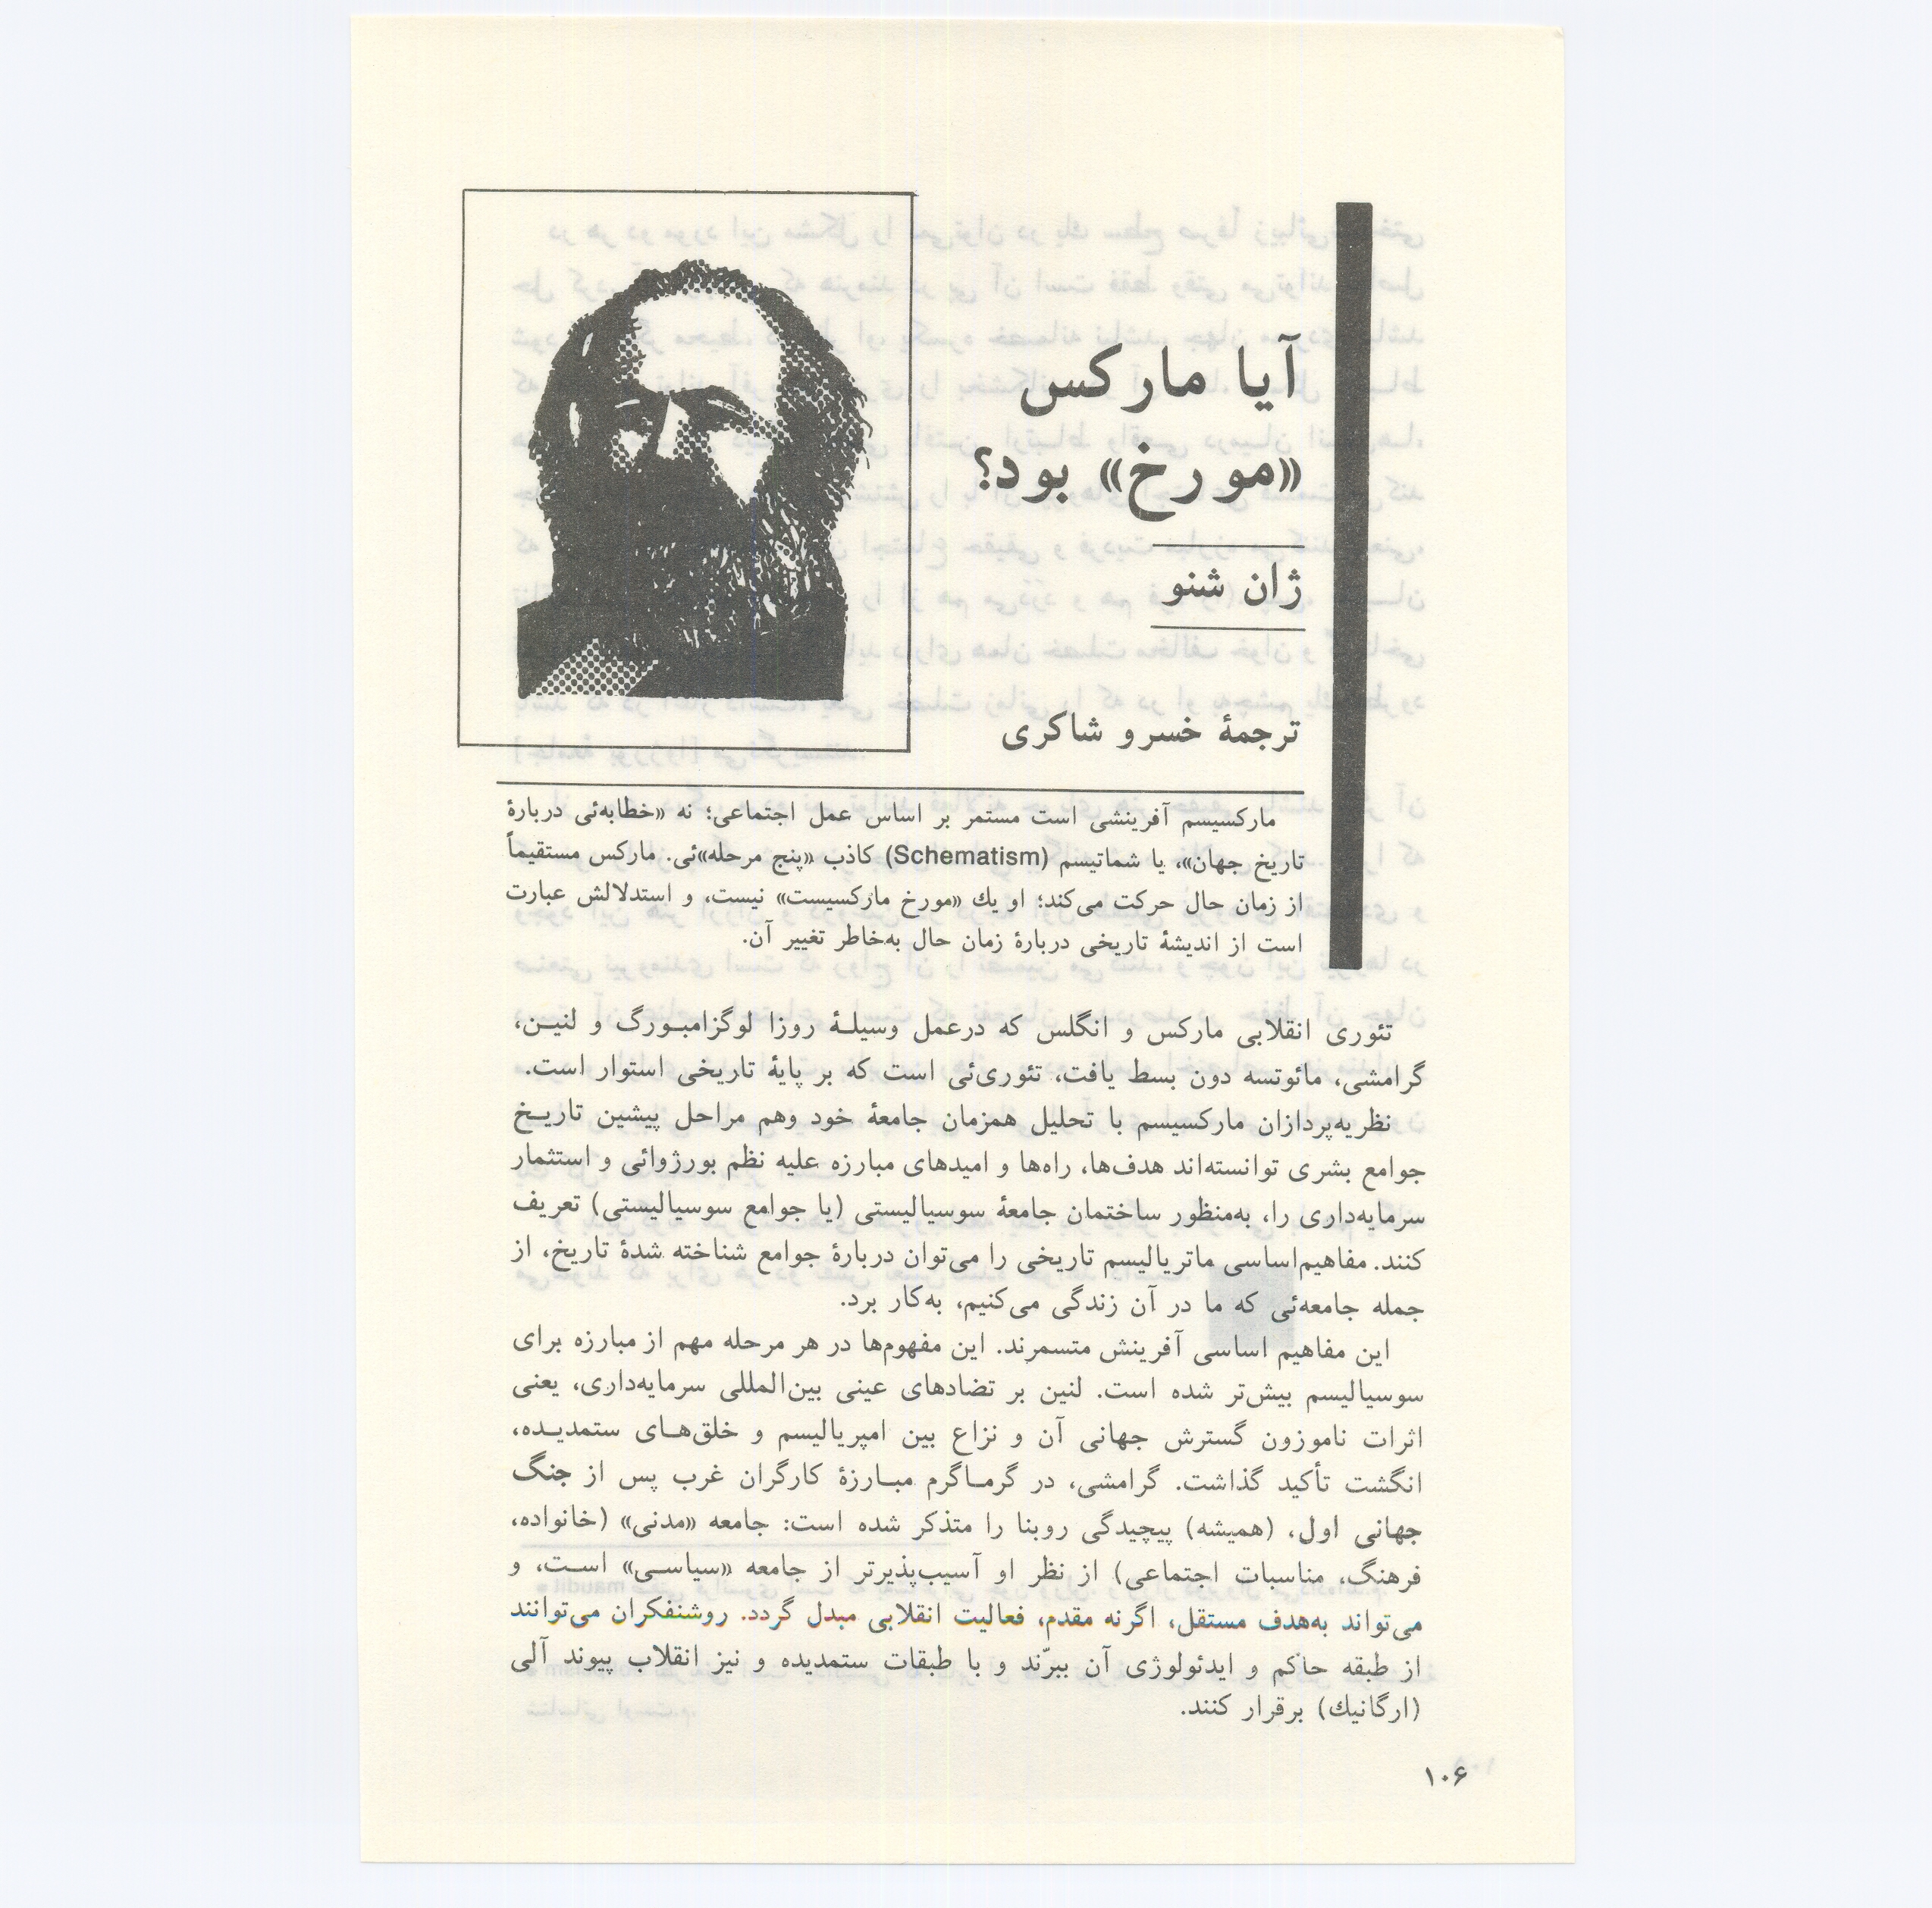 آیا مارکس
«مورخ» بود؟
ژان شنو
ترجمهٔ خسرو شاکری
مارکسیسم آفرینشی است مستمر بر اساس عمل اجتماعی؛ نه «خطابه‌ئی دربارهٔ
تاریخ جهان»، یا شماتیسم (Schematism) کاذب «پنج مرحله»ئی. مارکس مستقیماً
از زمان حال حرکت می‌کند؛ او یك «مورخ مارکسیست» نیست، و استدلالش عبارت
است از اندیشهٔ تاریخی دربارهٔ زمان حال به‌خاطر تغییر آن.
تئوری انقلابی مارکس و انگلس که درعمل وسیلهٔ روزا لوگزامبورگ و لنین،
گرامشی، مائوتسه دون بسط یافت، تئوری‌ئی است که بر پایهٔ تاریخی استوار است.
نظریه‌پردازان مارکسیسم با تحلیل همزمان جامعهٔ خود وهم مراحل پیشین تاریخ
جوامع بشری توانسته‌اند هدف‌ها، راه‌ها و امیدهای مبارزه علیه نظم بورژوائی و استثمار
سرمایه‌داری را، به‌منظور ساختمان جامعهٔ سوسیالیستی (یا جوامع سوسیالیستی) تعریف
کنند. مفاهیم‌اساسی ماتریالیسم تاریخی را می‌توان دربارهٔ جوامع شناخته شدهٔ تاریخ، از
جمله جامعه‌ئی که ما در آن زندگی می‌کنیم، به‌کار برد.
این مفاهیم اساسی آفرینش متسمرند. این مفهوم‌ها در هر مرحله مهم از مبارزه برای
سوسیالیسم بیش‌تر شده است. لنین بر تضادهای عینی بین‌المللی سرمایه‌داری، یعنی
اثرات ناموزون گسترش جهانی آن و نزاع بین امپریالیسم و خلق‌های ستمدیده،
انگشت تأکید گذاشت. گرامشی، در گرماگرم مبارزهٔ کارگران غرب پس از جنگ
جهانی اول، (همیشه) پیچیدگی روبنا را متذکر شده است: جامعه «مدنی» (خانواده،
فرهنگ، مناسبات اجتماعی) از نظر او آسیب‌پذیرتر از جامعه «سیاسی» است، و
می‌تواند به‌هدف مستقل، اگرنه مقدم، فعالیت انقلابی مبدل گردد. روشنفکران می‌توانند
از طبقه حاکم و ایدئولوژی آن ببرّند و با طبقات ستمدیده و نیز انقلاب پیوند آلی
(ارگانیك) برقرار کنند.
۱۰۶